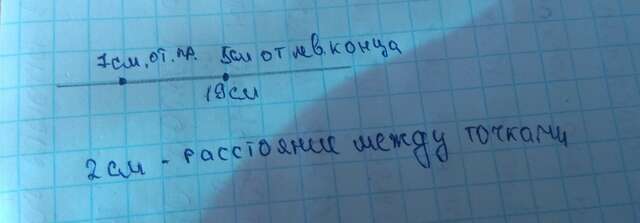 7см. от. пр. 5см от лев. конца
19см
2см - расстояние между точками